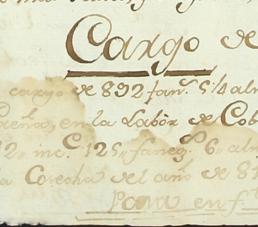 Cargo de
cargo de 892 fan.s 5¼ alm
en la Labor de Cob
12 inc. 125 faneg.s 6 alm
a Cosecha del año de 82
Para en f.